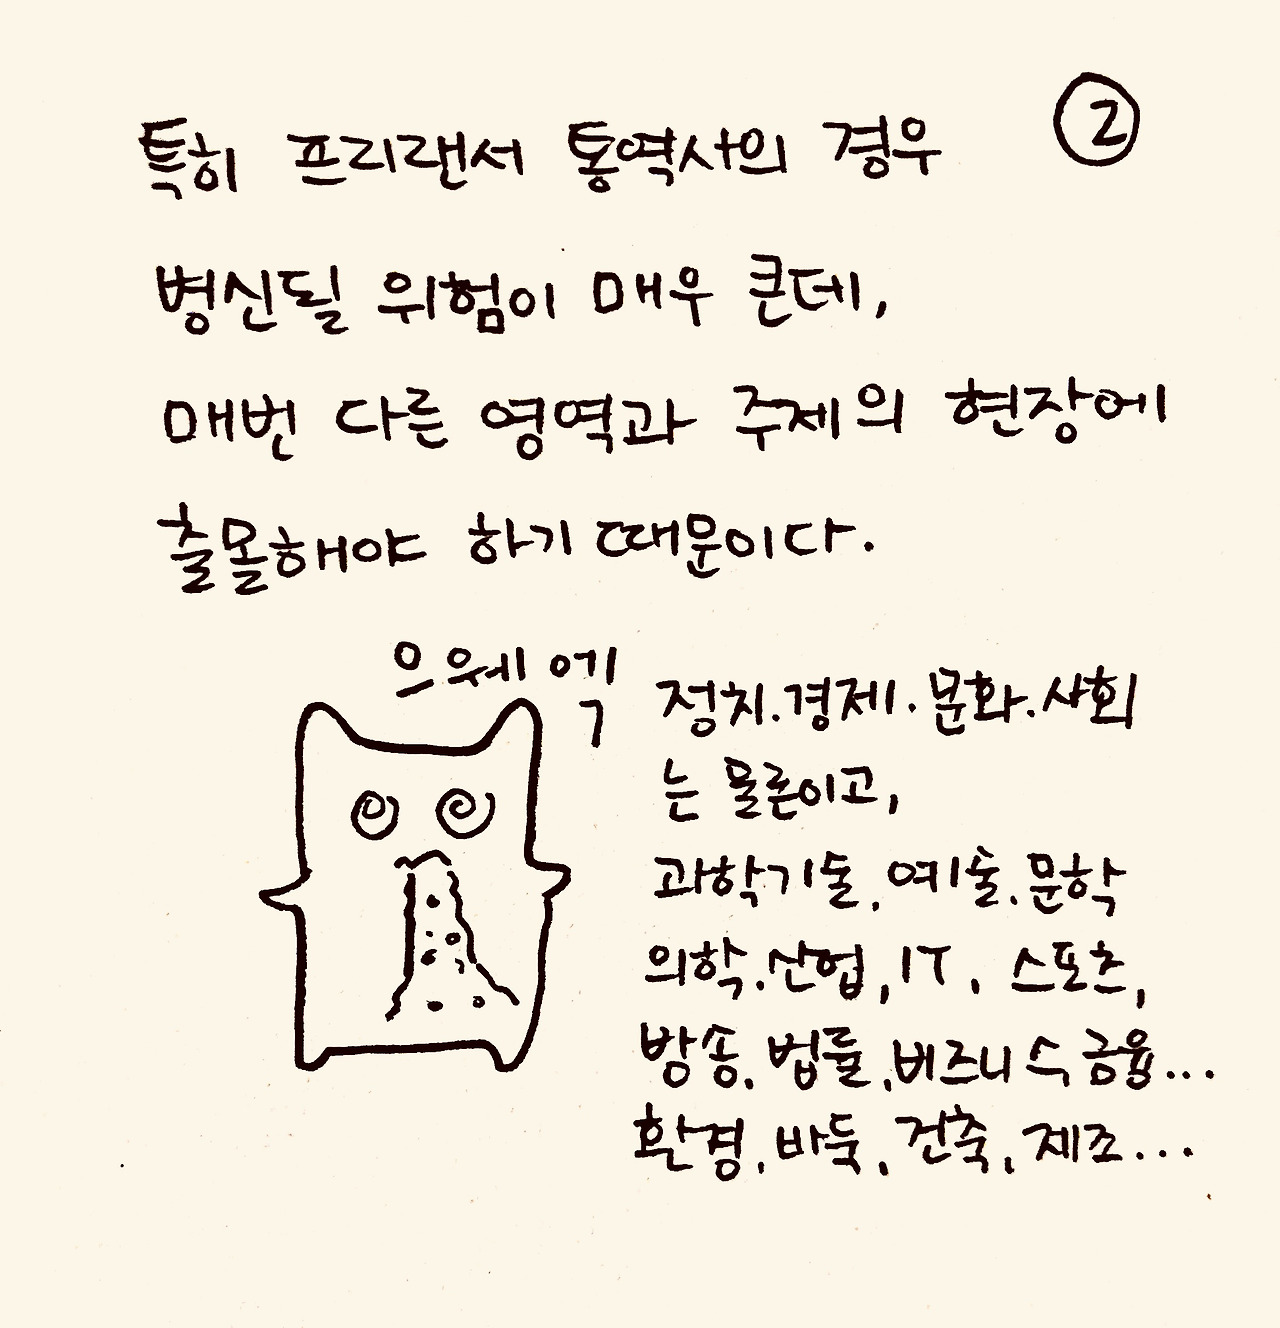 ②
특히 프리랜서 통역사의 경우
병신될 위험이 매우 큰데,
매번 다른 영역과 주제의 현장에
출몰해야 하기 때문이다.
으웨엑
정치.경제.문화.사회
는 물론이고,
과학기술, 예술.문학
의학.산업, IT, 스포츠,
방송, 법률, 비즈니스 금융...
환경, 바둑, 건축, 제조...